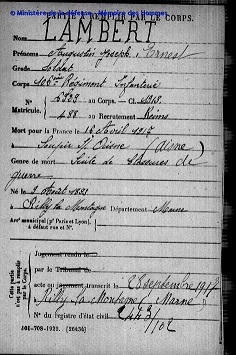 © Ministère de la défense - Mémoire des Hommes
PARTIE A REMPLIR PAR LE CORPS.
Nom LAMBERT
Prénoms Augustin Joseph Ernest
Grade Soldat
Corps 106ème Régiment Infanterie
N° au Corps. — Cl.
Matricule. 488 au Recrutement Reims
Mort pour la France le 16 Avril 1917
à Soupir s/ Aisne (Aisne)
Genre de mort Suite de blessures de
guerre
Né le Août 1881
à Rilly la Montagne Département Marne
Arr¹ municipal (pʳ Paris et Lyon),
à défaut rue et N°.
Cette partie n'est pas à remplir par le Corps.
Jugement rendu le
par le Tribunal de
acte ou jugement transcrit le 28 septembre 1917
à Rilly la Montagne (Marne)
N° du registre d'état civil
101-708-1922. [26434]